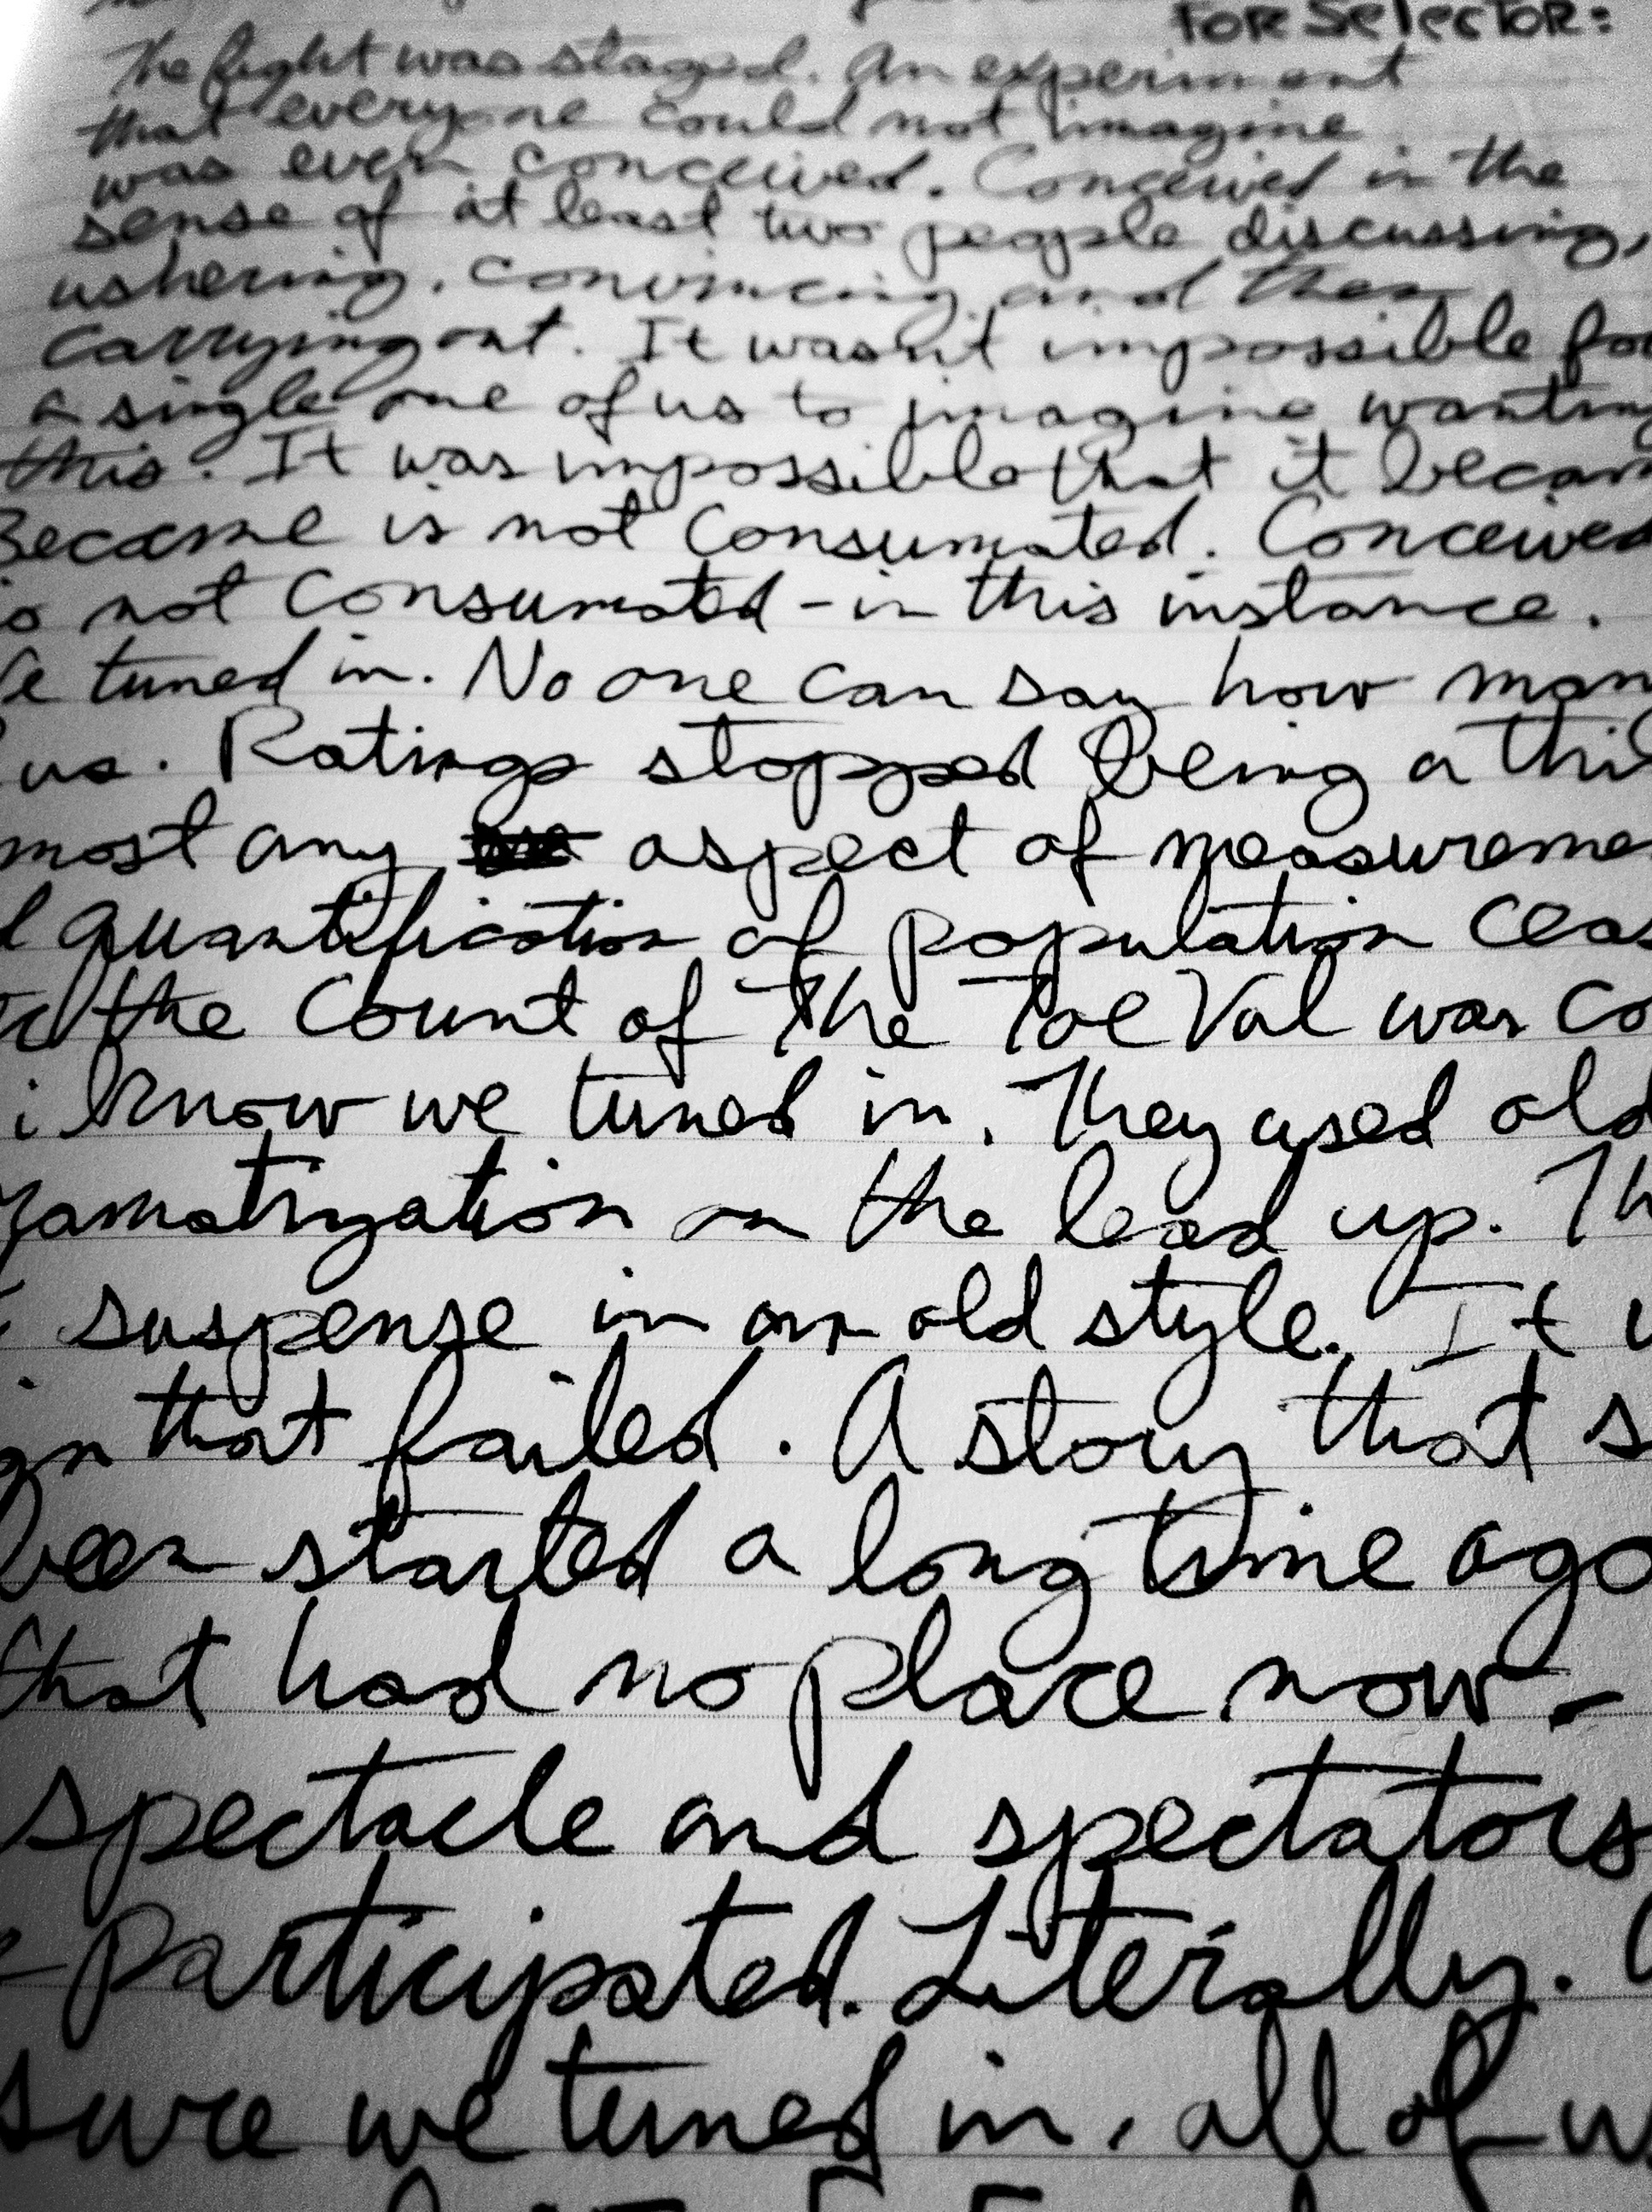 FOR SelecToR:
The fight was staged. An experiment
that everyone could not imagine
was even conceived. Conceived in the
sense of at least two people discussing,
ushering, convincing and then
carrying out. It wasn't impossible for
a single one of us to imagine wanting
this. It was impossible that it becam
Became is not Consumated. Conceived
is not Consumated - in this instance.
We tuned in. No one can say how man
us. Ratings stopped being a thi
most any aspect of measureme
quantification of population ceas
the Count of The Toe Val was co
i know we tuned in. They used old
ramatization on the lead up. Th
suspense in an old style. It w
gn that failed. A story that s
been started a long time ago
that had no place now -
spectacle and spectators
Participated. Literally.
sure we tuned in, all of u